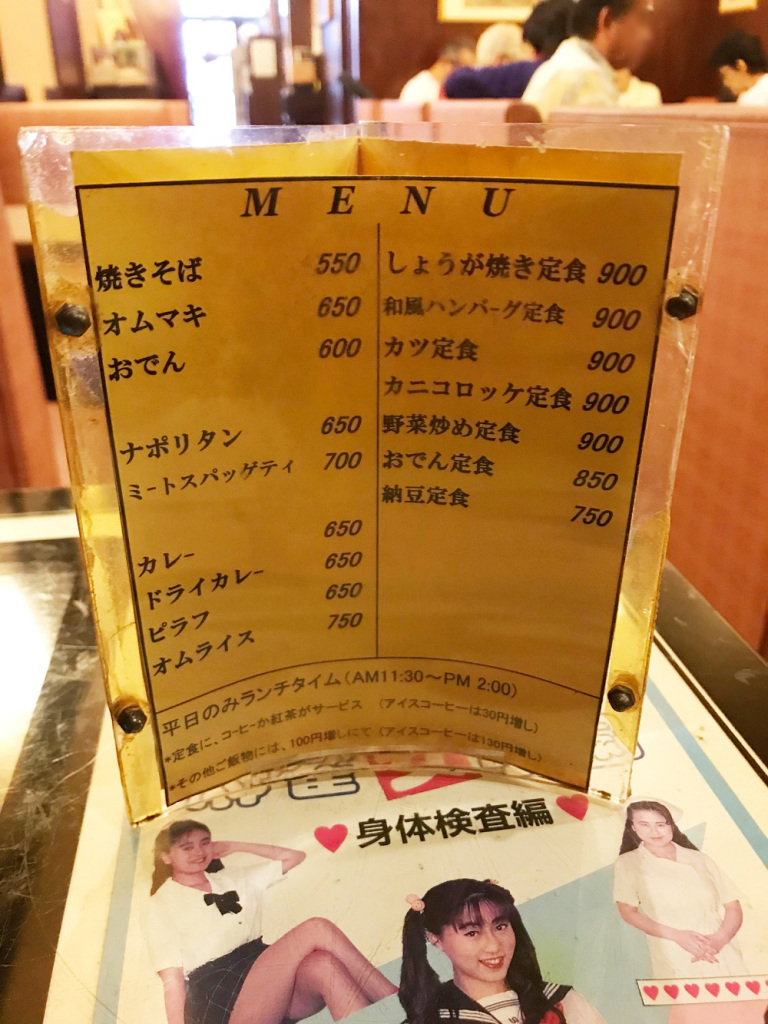 MENU
焼きそば 550
オムマキ 650
おでん 600
ナポリタン 650
ミートスパッゲティ 700
カレー 650
ドライカレー 650
ピラフ 650
オムライス 750
しょうが焼き定食 900
和風ハンバーグ定食 900
カツ定食 900
カニコロッケ定食 900
野菜炒め定食 900
おでん定食 850
納豆定食 750
平日のみランチタイム（AM11:30～PM 2:00）
*定食に、コーヒーか紅茶がサービス （アイスコーヒーは30円増し）
*その他ご飯物には、100円増しにて（アイスコーヒーは130円増し）
身体検査編